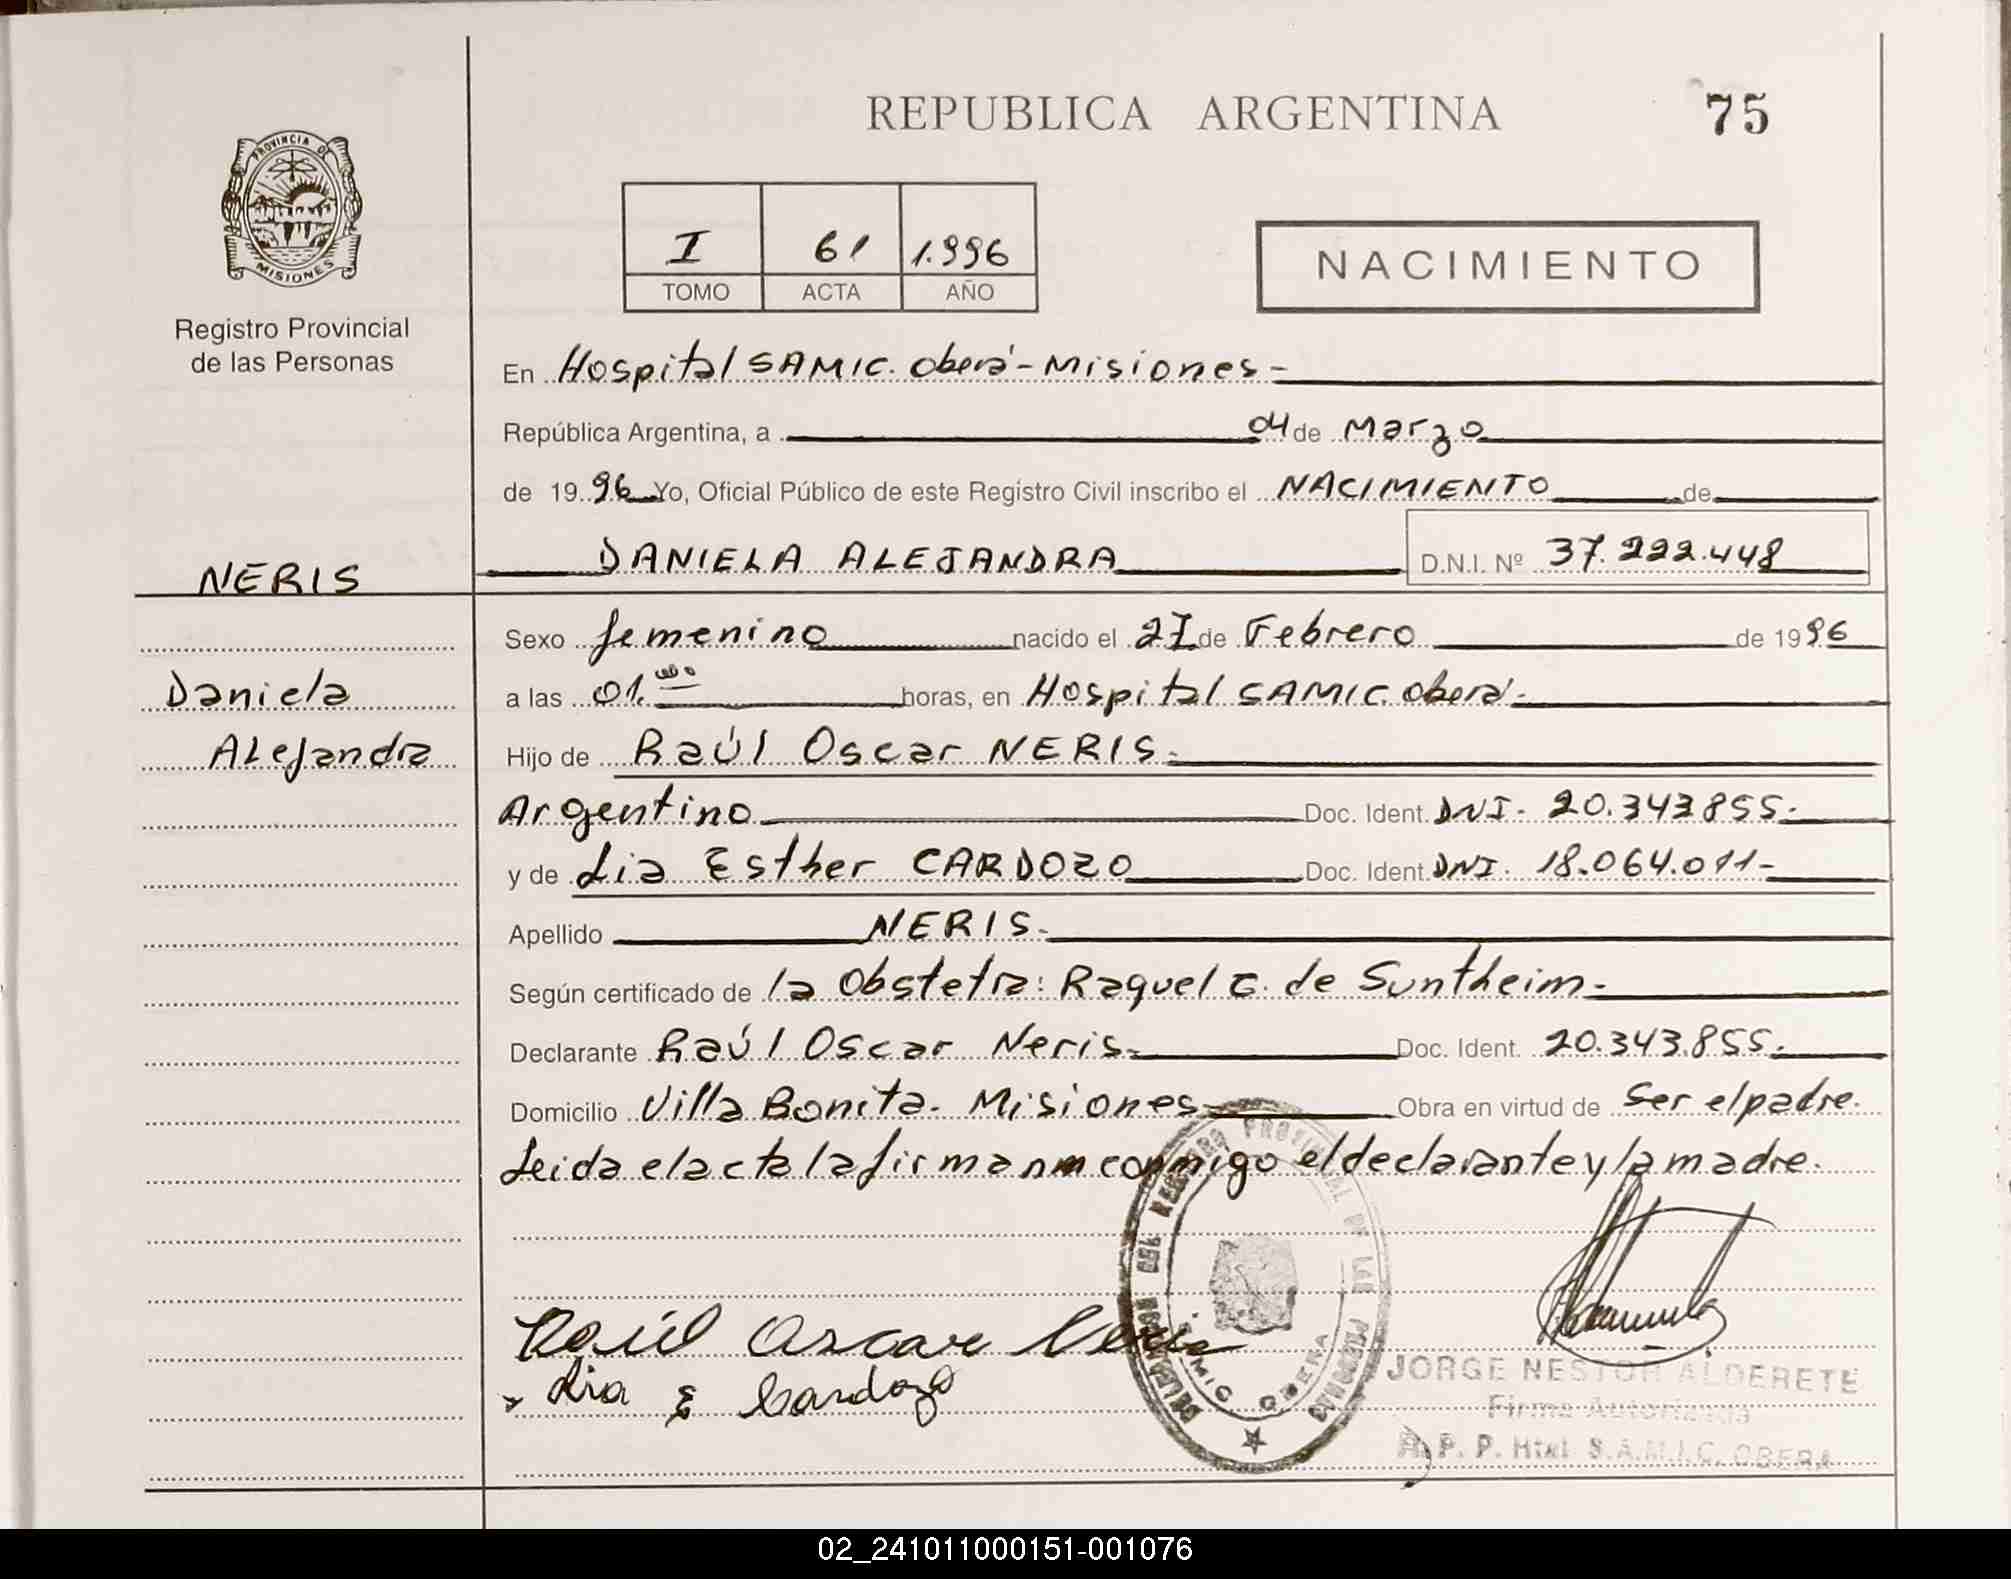 REPUBLICA ARGENTINA
75
PROVINCIA DE
MISIONES
Registro Provincial
de las Personas
I 61 1.996
TOMO ACTA AÑO
NACIMIENTO
En Hospital SAMIC. Oberá - Misiones -
República Argentina, a 04 de Marzo
de 19 96 Yo, Oficial Público de este Registro Civil inscribo el NACIMIENTO de
NERIS
DANIELA ALEJANDRA D.N.I. Nº 37.222.448
Sexo femenino nacido el 27 de Febrero de 1996
Daniela
a las 01. horas, en Hospital SAMIC. Oberá -
Alejandra
Hijo de Raúl Oscar NERIS -
Argentino Doc. Ident. DNI - 20.343855 -
y de Lia Esther CARDOZO Doc. Ident. DNI - 18.064.011 -
Apellido NERIS -
Según certificado de la Obstetra: Raquel C. de Suntheim -
Declarante Raúl Oscar Neris - Doc. Ident. 20.343.855 -
Domicilio Villa Bonita - Misiones Obra en virtud de Ser el padre.
Leida el acta la firman conmigo el declarante y la madre.
DEL REGISTRO PROVINCIAL DE LAS PERSONAS
SAMIC OBERA
Raúl Oscar Neris
Lia E Cardozo
JORGE NESTOR ALDERETE
Firma Autorizada
R. P. P. Htal S.A.M.I.C. OBERA
02_241011000151-001076